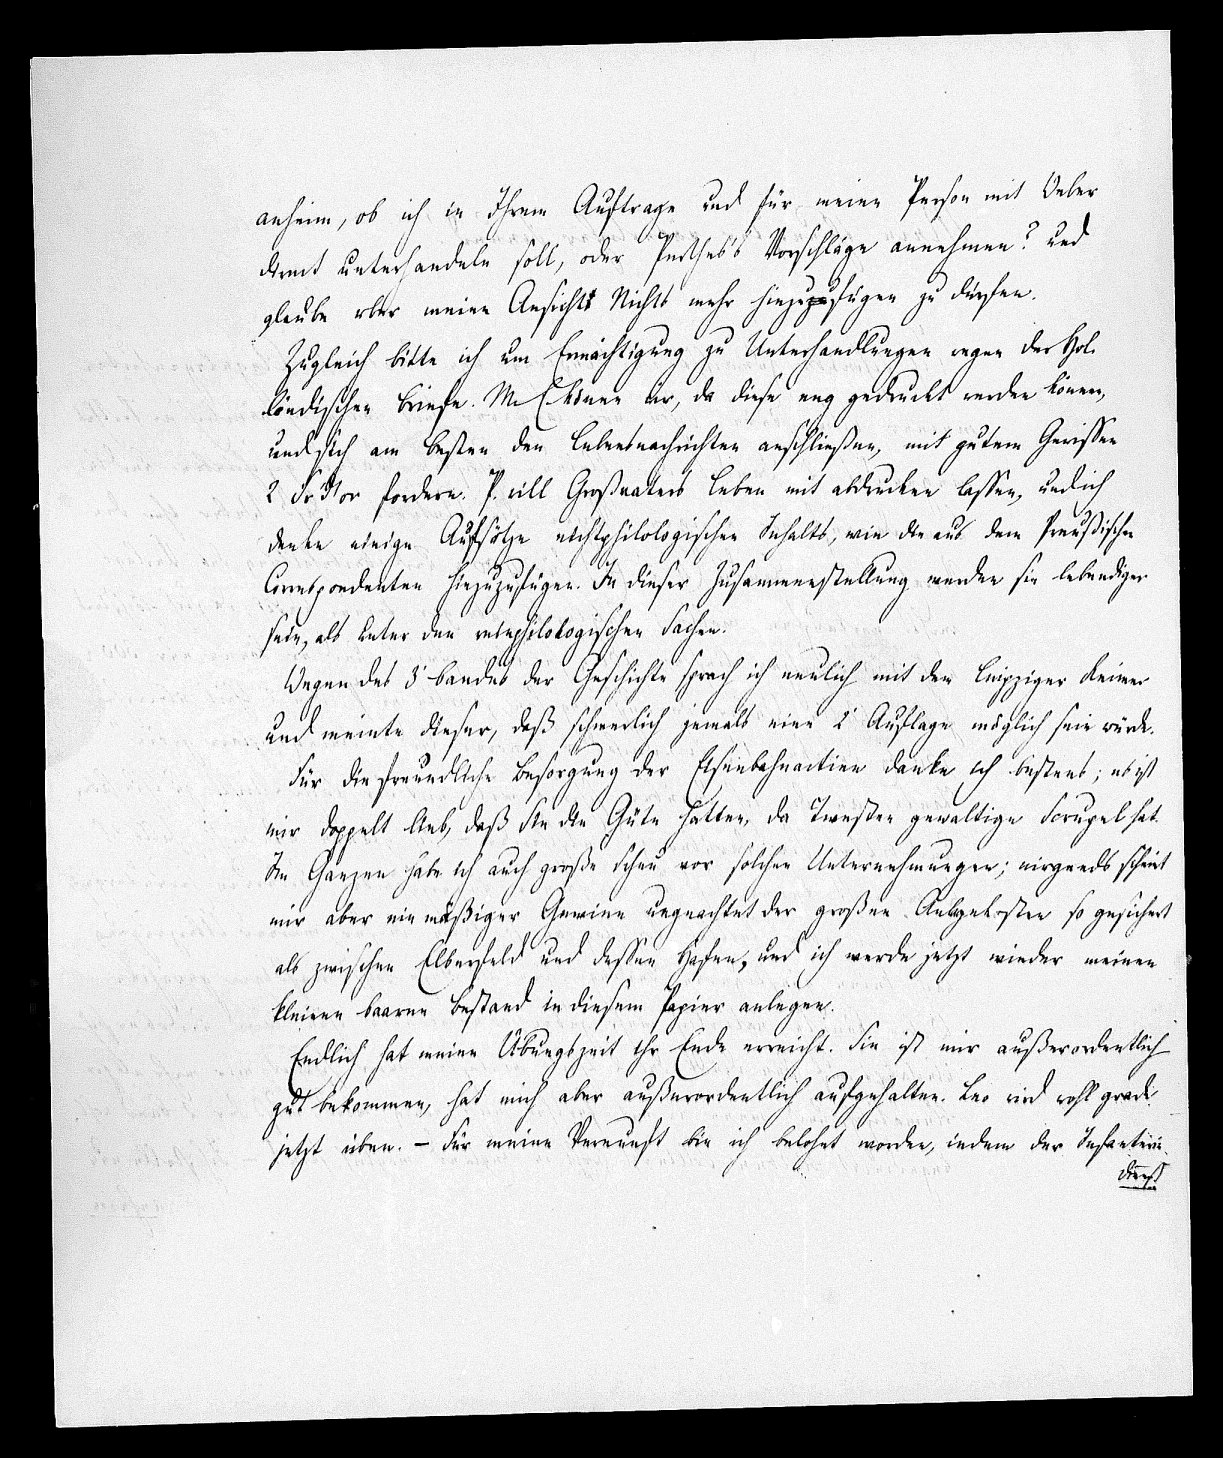 anheim, ob ich in Ihrem Auftrage und für meine Person mit Veber
direct unterhandeln soll, oder Perthes's Vorschläge annehmen? und
glaube über meine Ansicht Nichts mehr hinzuzufügen zu dürfen.
Zugleich bitte ich um Ermächtigung zu Unterhandlungen wegen der Hol-
ländischen Briefe. M. E. können wir, da diese eng gedruckt werden können,
und sich am besten den Lebensnachrichten anschließen, mit gutem Gewissen
2 Frd'or fordern. P. will Großvaters Leben mit abdrucken lassen, und ich
denke einige Aufsätze nichtphilologischen Inhalts, wie die aus dem Preußischen
Correspondenten hinzuzufügen. In dieser Zusammenstellung werden sie lebendiger
sein, als unter den reinphilologischen Sachen.
Wegen des 3' Bandes der Geschichte sprach ich neulich mit dem Leipziger Reimer
und meinte dieser, daß schwerlich jemals eine 2' Auflage möglich sein würde.
Für die freundliche Besorgung der Eisenbahnactien danke ich bestens; es ist
mir doppelt lieb, daß Sie die Güte hatten, da Twesten gewaltige Scrupel hat.
Im Ganzen habe ich auch große Scheu vor solchen Unternehmungen; nirgends scheint
mir aber ein mäßiger Gewinn ungeachtet der großen Anlagekosten so gesichert
als zwischen Elberfeld und dessen Hafen, und ich werde jetzt wieder meinen
kleinen baaren Bestand in diesem Papier anlegen.
Endlich hat meine Übungszeit ihr Ende erreicht. Sie ist mir außerordentlich
gut bekommen, hat mich aber außerordentlich aufgehalten. Leo wird wohl grade
jetzt üben. – Für meine Vernunft bin ich belohnt worden, indem der Infanterie-
dienst